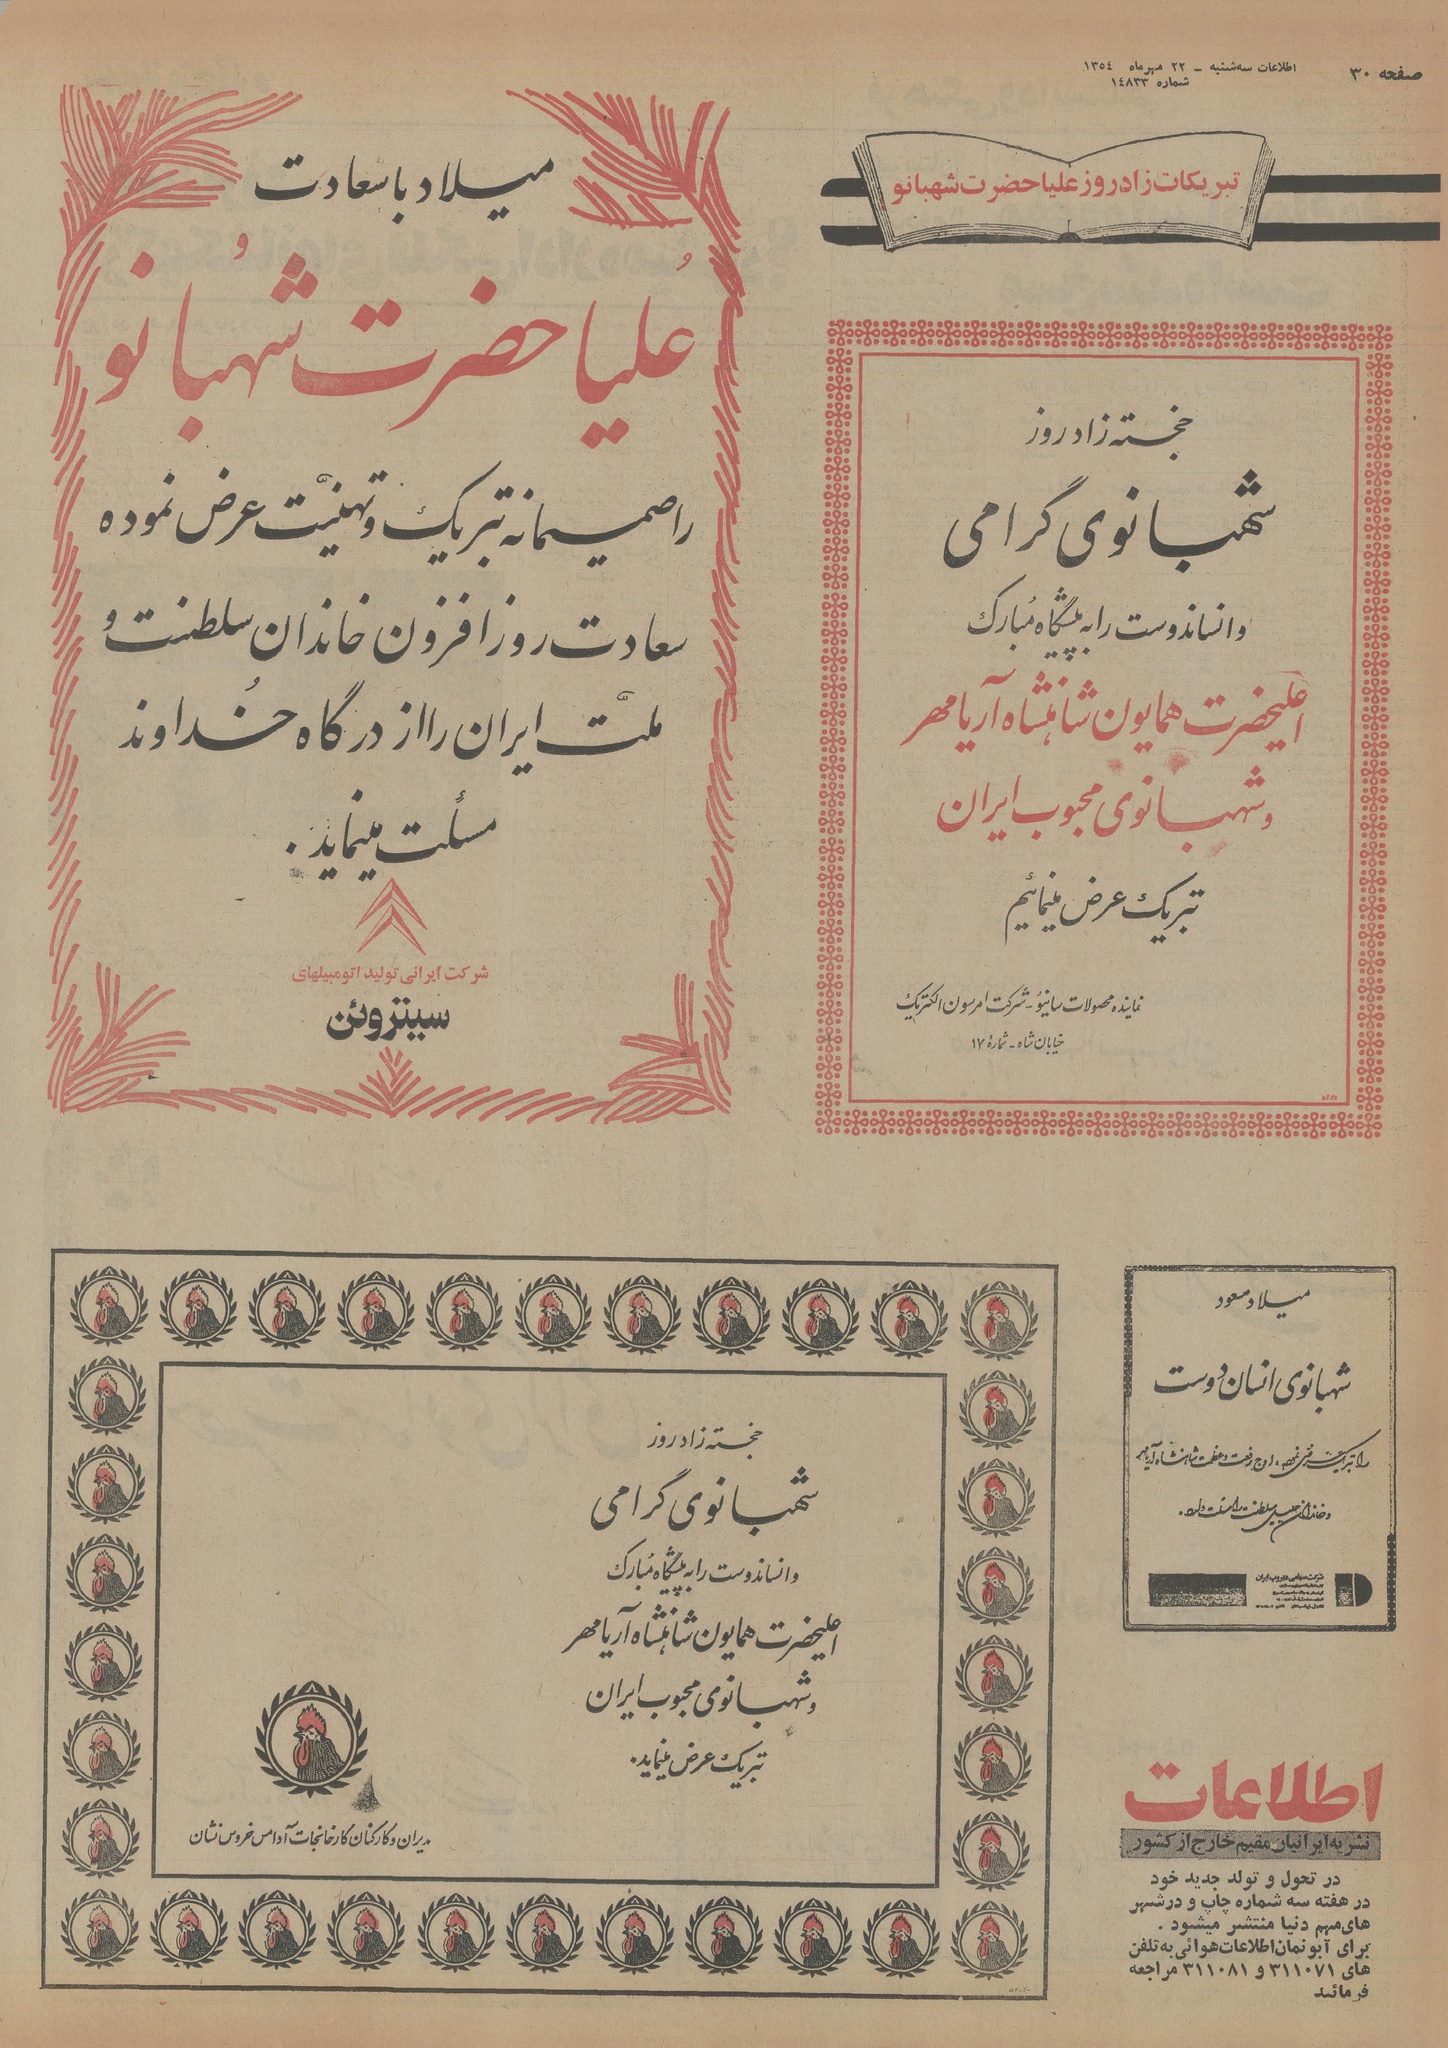 صفحه ۳۰
اطلاعات سه‌شنبه - ۲۲ مهر ماه ۱۳۵۴
شماره ۱۴۸۳۳
تبریکات زادروز علیاحضرت شهبانو
خجسته زادروز
شهبانوی گرامی
و انساندوست را به پیشگاه مبارک
اعلیحضرت همایون شاهنشاه آریامهر
و شهبانوی محبوب ایران
تبریک عرض مینمائیم
نماینده محصولات سانیو - شرکت امرسون الکتریک
خیابان شاه - شماره ۱۷
میلاد با سعادت
علیاحضرت شهبانو
را صمیمانه تبریک و تهنیت عرض نموده
سعادت روز افزون خاندان سلطنت و
ملت ایران را از درگاه خداوند
مسئلت مینماید.
شرکت ایرانی تولید اتومبیلهای
سیتروئن
میلاد مسعود
شهبانوی انسان دوست
را تبریک عرض نموده، اوج رفعت و عظمت شاهنشاه آریامهر
و خاندان جلیل سلطنت را مسئلت دارد.
خجسته زادروز
شهبانوی گرامی
و انساندوست را به پیشگاه مبارک
اعلیحضرت همایون شاهنشاه آریامهر
و شهبانوی محبوب ایران
تبریک عرض مینماید.
مدیران و کارکنان کارخانجات آدامس خروس نشان
اطلاعات
نشریه ایرانیان مقیم خارج از کشور
در تحول و تولد جدید خود
در هفته سه شماره چاپ و در شهر
های مهم دنیا منتشر میشود.
برای آبونمان اطلاعات هوائی به تلفن
های ۳۱۱۰۷۱ و ۳۱۱۰۸۱ مراجعه
فرمائید